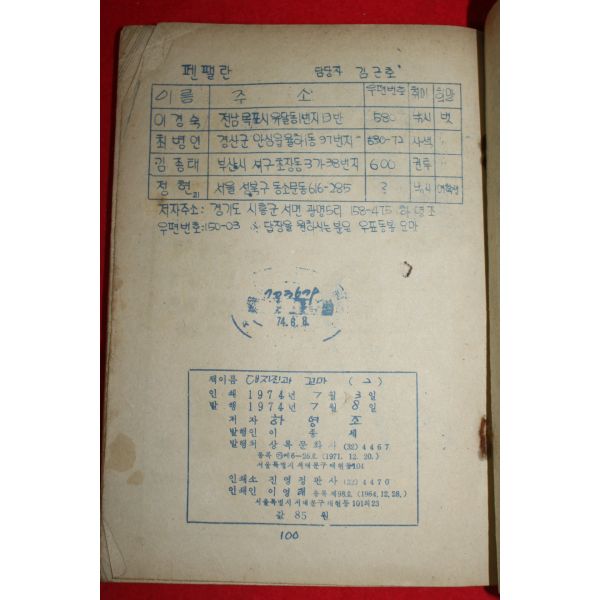 펜팔란 담당자 김근호
이름 주소 우편번호 취미 희망
이경숙 전남 목포시 유달동1번지 13반 580 낚시 벗
최병연 경산군 안심읍 율하동 97번지 630-72 사색 〃
김종태 부산시 서구 초장동 3가 98번지 600 권투 〃
정현 서울 성북구 동소문동 616-285 ? 낚시 여학생
저자주소: 경기도 시흥군 서면 광명5리 158-475 하영조
우편번호:150-03 답장을 원하시는분은 우표동봉 요마
74.6.8.
책이름 대지진과 꼬마 (2)
인쇄 1974년 7월 3일
발행 1974년 7월 8일
저자 하영조
발행인 이종세
발행처 상록문화사 (32) 4467
등록 제6-26호 (1971. 12. 20.)
서울특별시 서대문구 대현동104
인쇄소 진영정판사 (32) 4470
인쇄인 이영래 등록 제98호 (1964.12.28.)
서울특별시 서대문구 대현동 101의23
값 85원
100